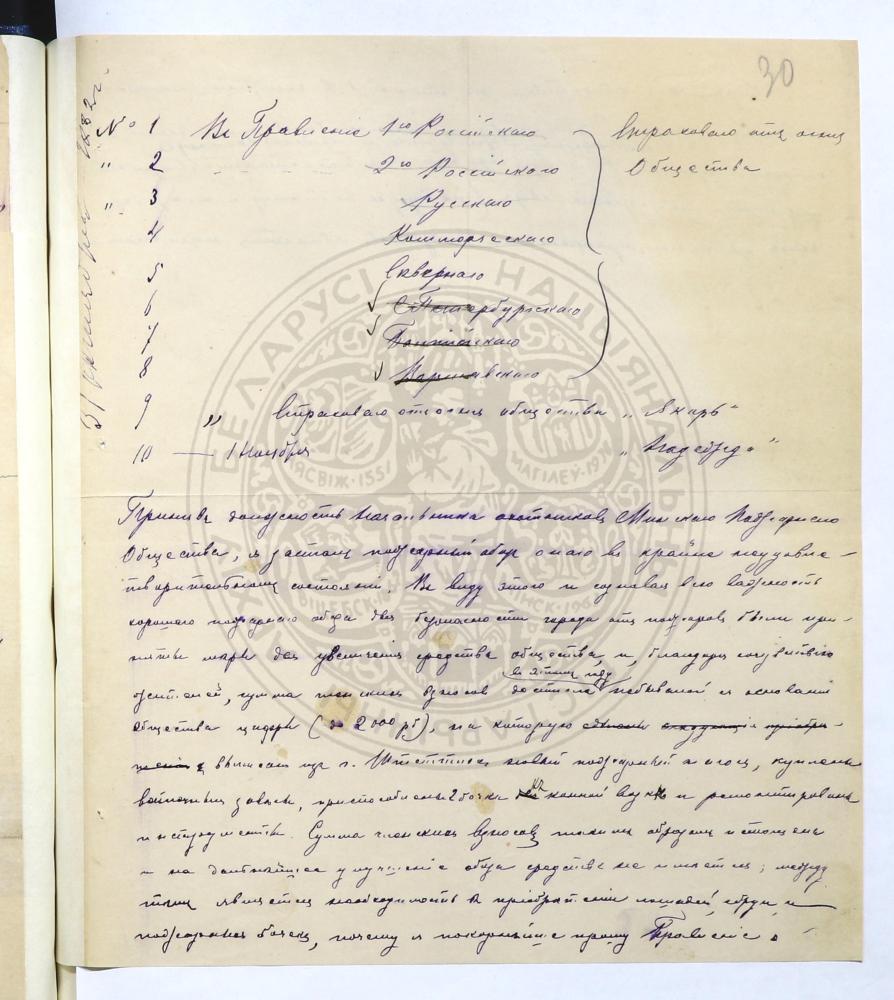 30
31 октября 1882 г.
№ 1 Въ Правленiе 1го Россiйскаго
Страховаго отъ огня
" 2 2го Россiйскаго
Общества
" 3 Русскаго
4 Коммерческаго
5 Севернаго
6 С Петербургскаго
7 Балтiйскаго
8 Варшавскаго
9 " Страховаго отъ огня общества „Якорь"
10 — 1 Ноября „Надежда"
Принявъ должность Начальника охотниковъ Минскаго Пожарнаго
Общества, я засталъ пожарный обозъ онаго въ крайне неудовле-
творительномъ состоянiи. Въ виду этого и сознавая всю важность
хорошаго пожарнаго обоза для безопасности города отъ пожаровъ были при-
няты меры для увеличенiя средствъ общества, и, благодаря сочувствiю
въ этомъ году
жителей, сумма членскихъ взносовъ достигла небывалой съ основанiя
общества цифры (до 2000 рб), на которую
выписанъ изъ г. Штеттина новый пожарный насосъ, куплены
приспособлены 2 бочки конной и ремонтированы
инструменты. Сумма членскихъ взносовъ такимъ образомъ истощена
и на дальнейшее улучшенiе обоза средствъ не имеется; между
темъ является необходимость въ прiобретенiи лошадей, сбруи и
пожарныхъ бочекъ, почему я покорнейше прошу Правленiе